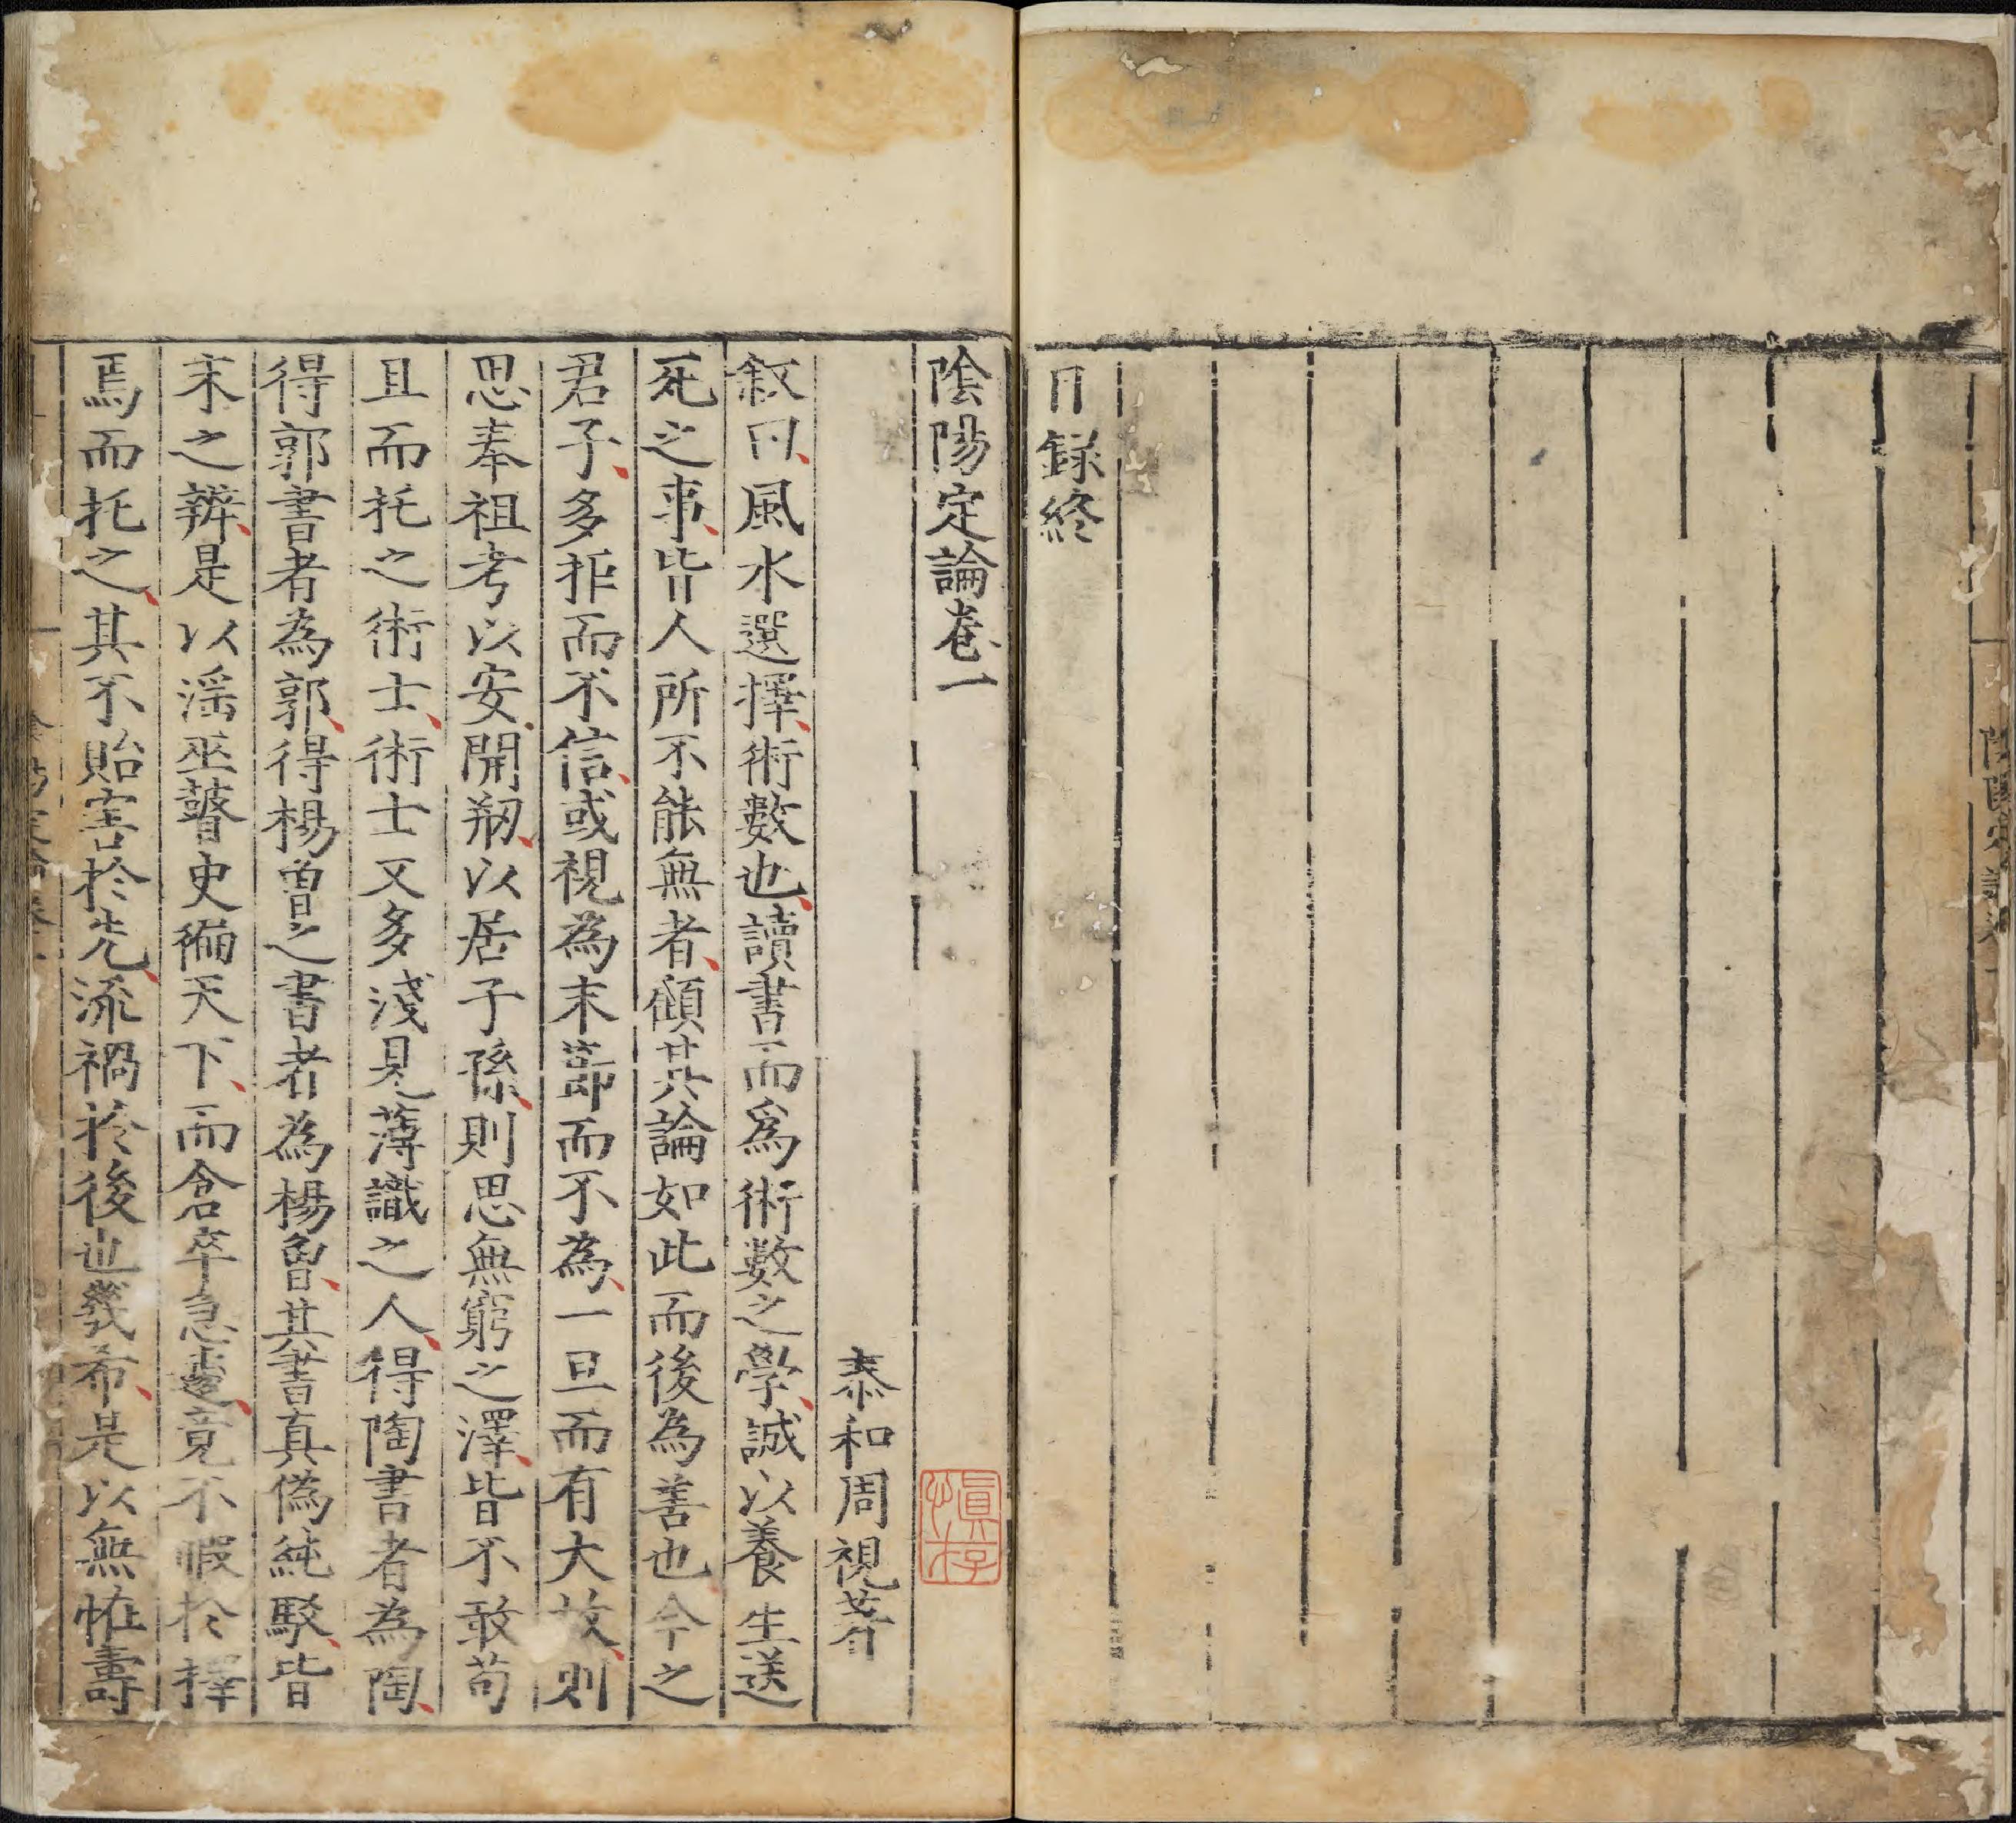 目録終
陰陽定論卷一
泰和周視著
叙曰風水選擇術數也讀書而爲術數之學誠以養生送
死之事皆人所不能無者顧其論如此而後為善也今之
君子多拒而不信或視為末莭而不為一旦而有大故則
思奉祖考以安開剏以居子孫則思無窮之澤皆不敢苟
且而托之術士術士又多淺見薄識之人得陶書者為陶
得郭書者為郭得楊曾之書者為楊曾其書真僞純駁皆
未之辨是以滛巫瞽史徧天下而倉卒急遽竟不暇於擇
焉而托之其不貽害於先流禍於後也幾希是以無惟壽